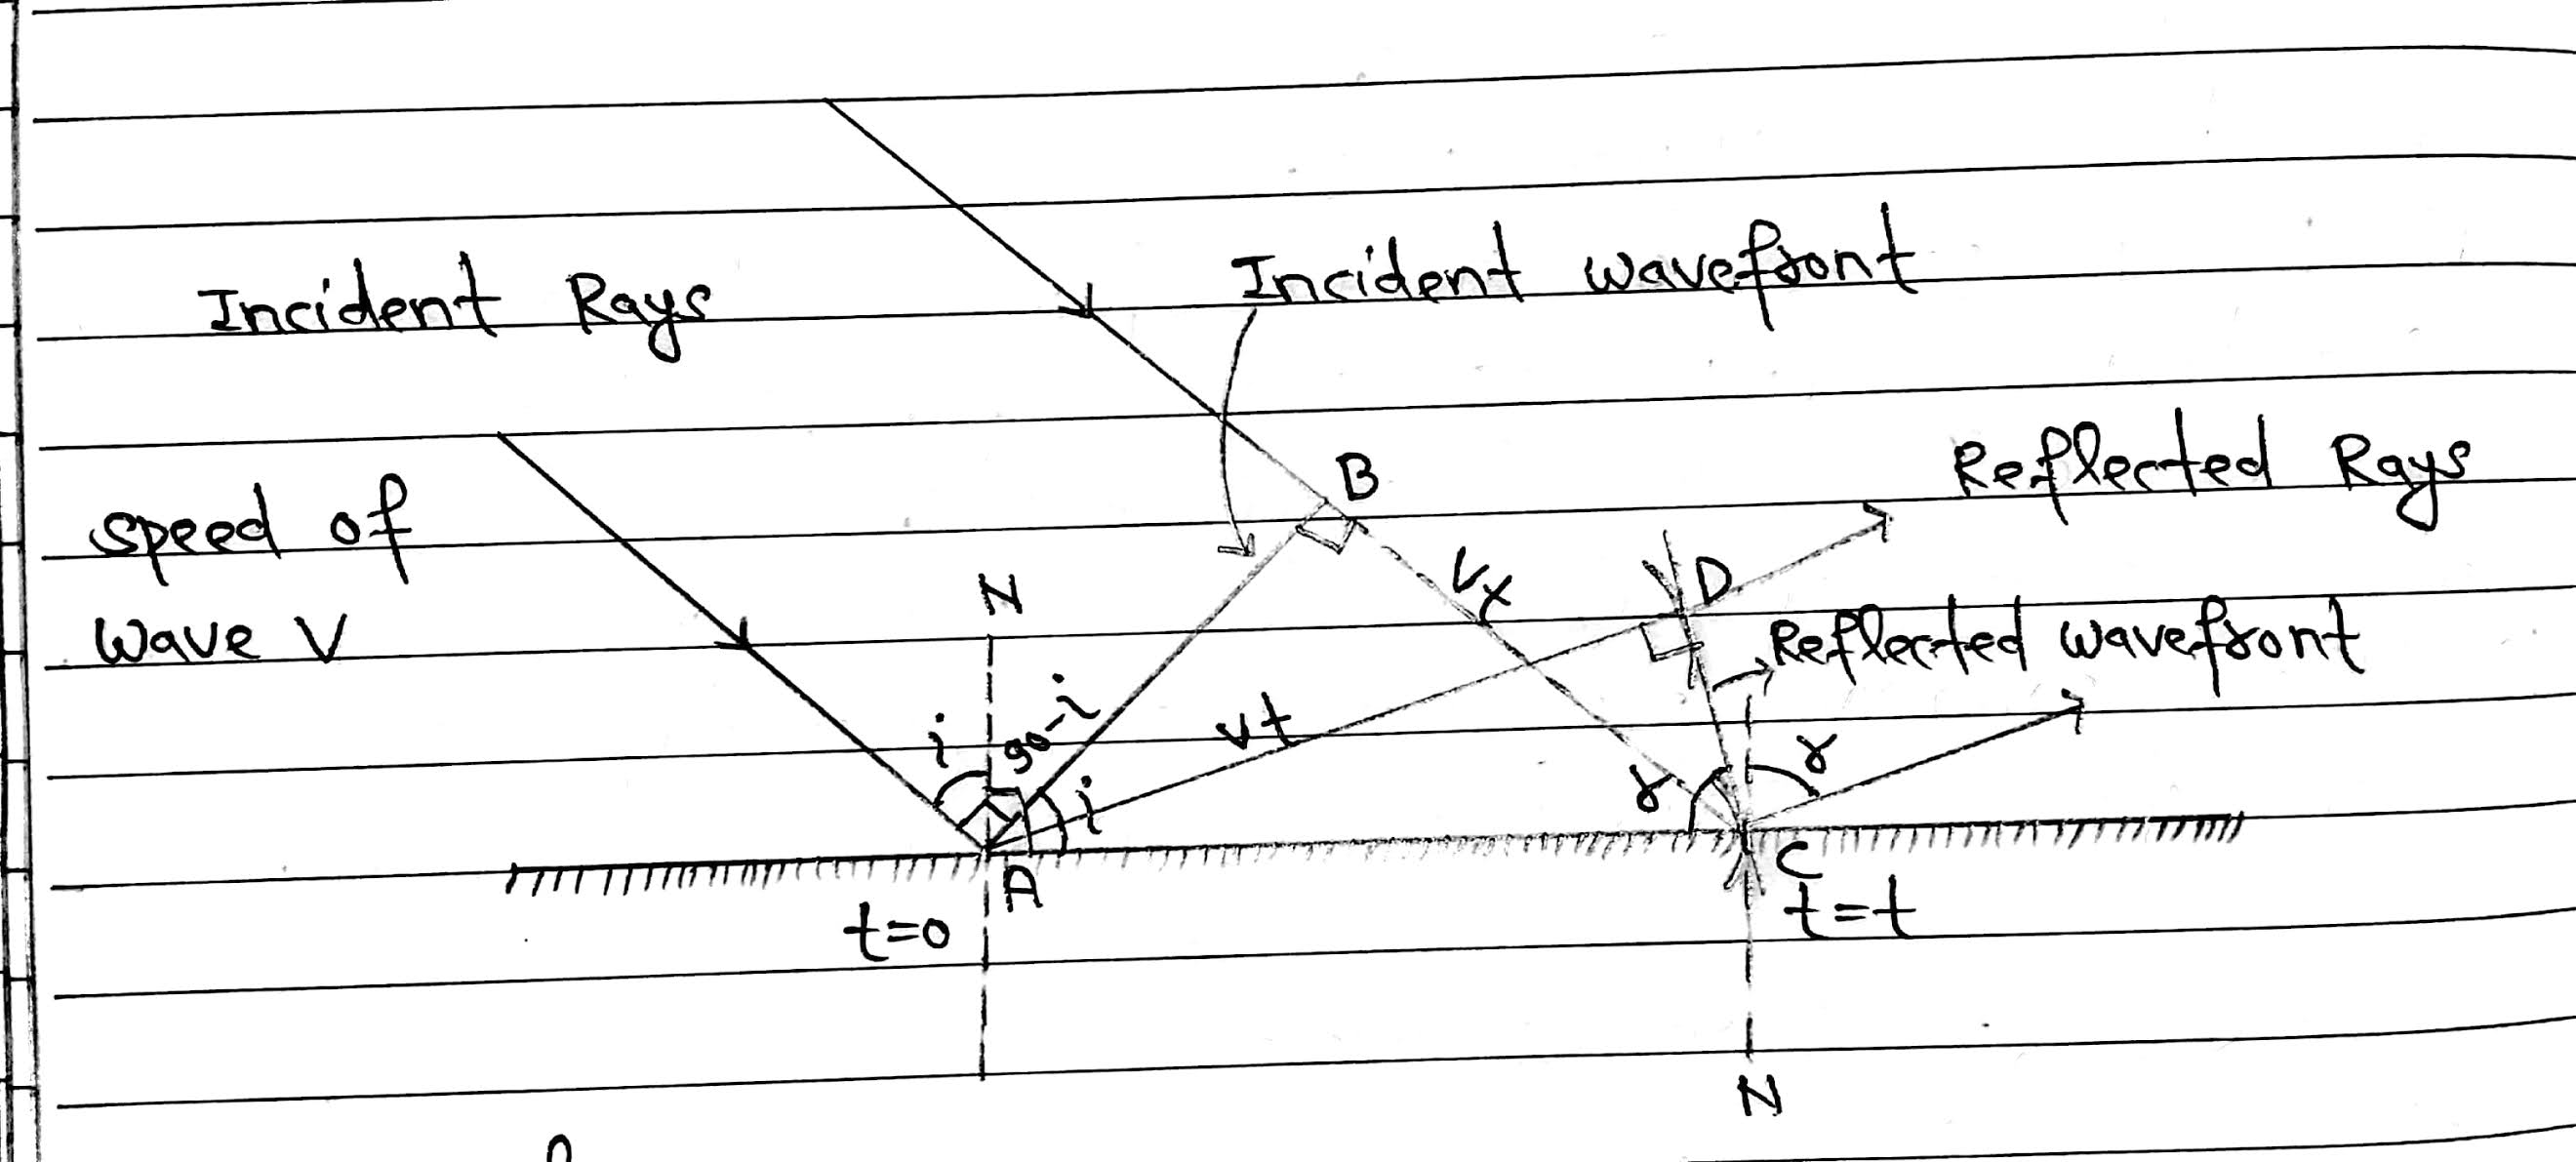 Incident wavefront
Incident Rays
B
Reflected Rays
speed of
wave V
N
D
Vt
Reflected wavefront
i
90-i
i
vt
r
r
A
C
t=0
t=t
N